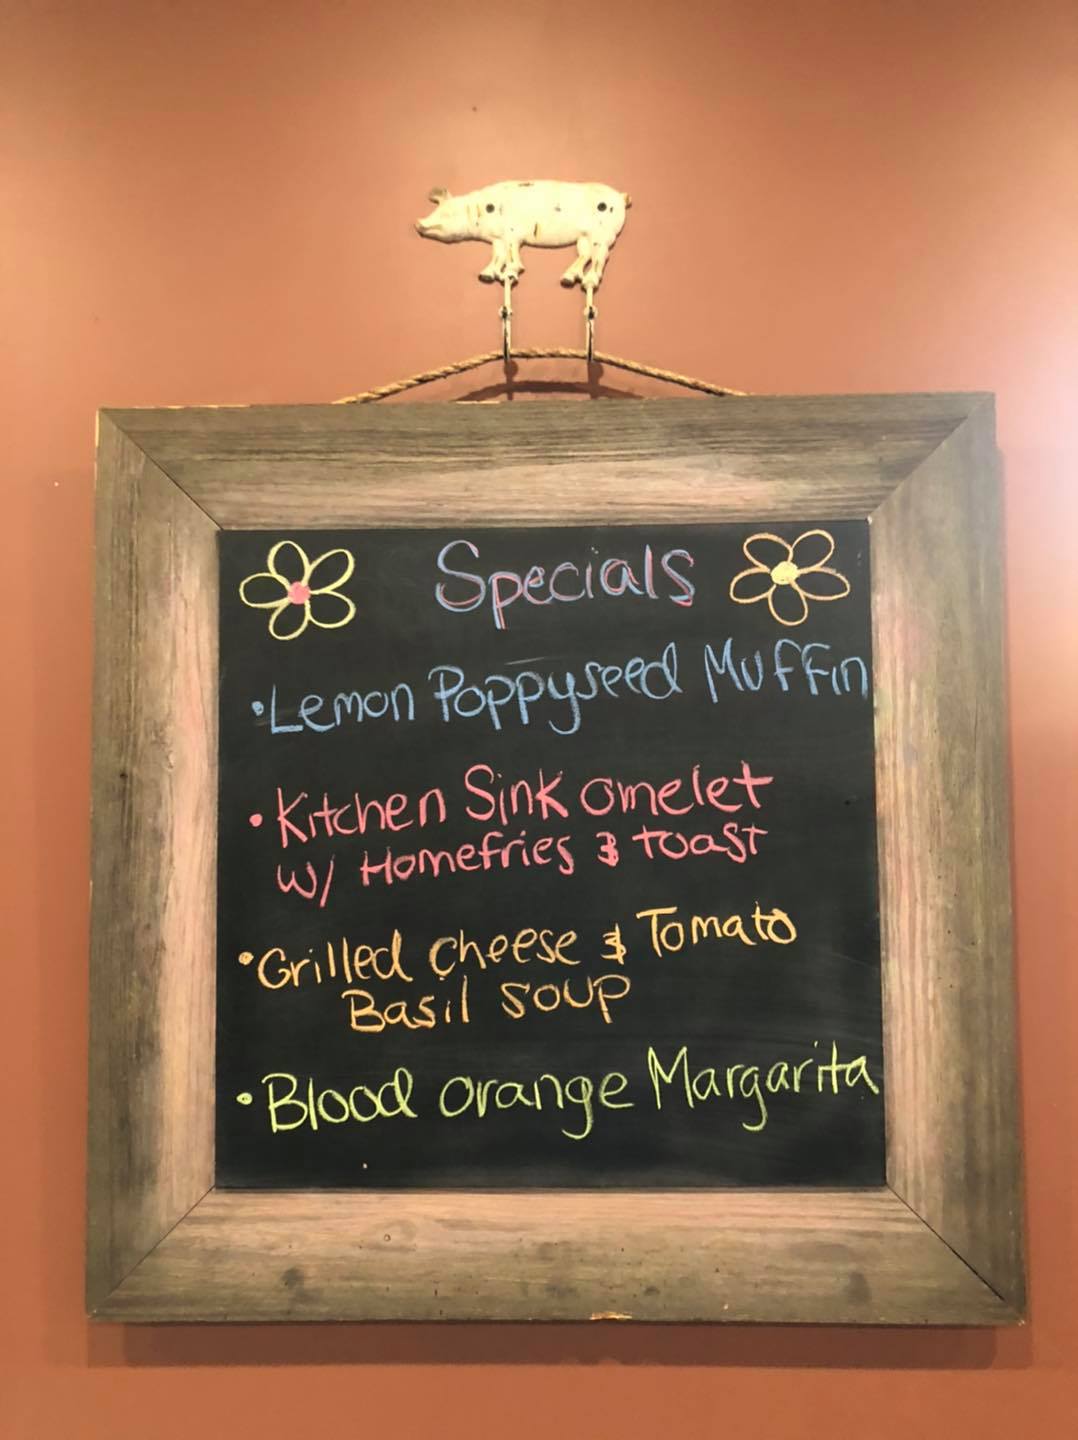 Specials
• Lemon Poppyseed Muffin
• Kitchen Sink omelet
w/ Homefries & toast
• Grilled cheese & Tomato
Basil soup
• Blood orange Margarita